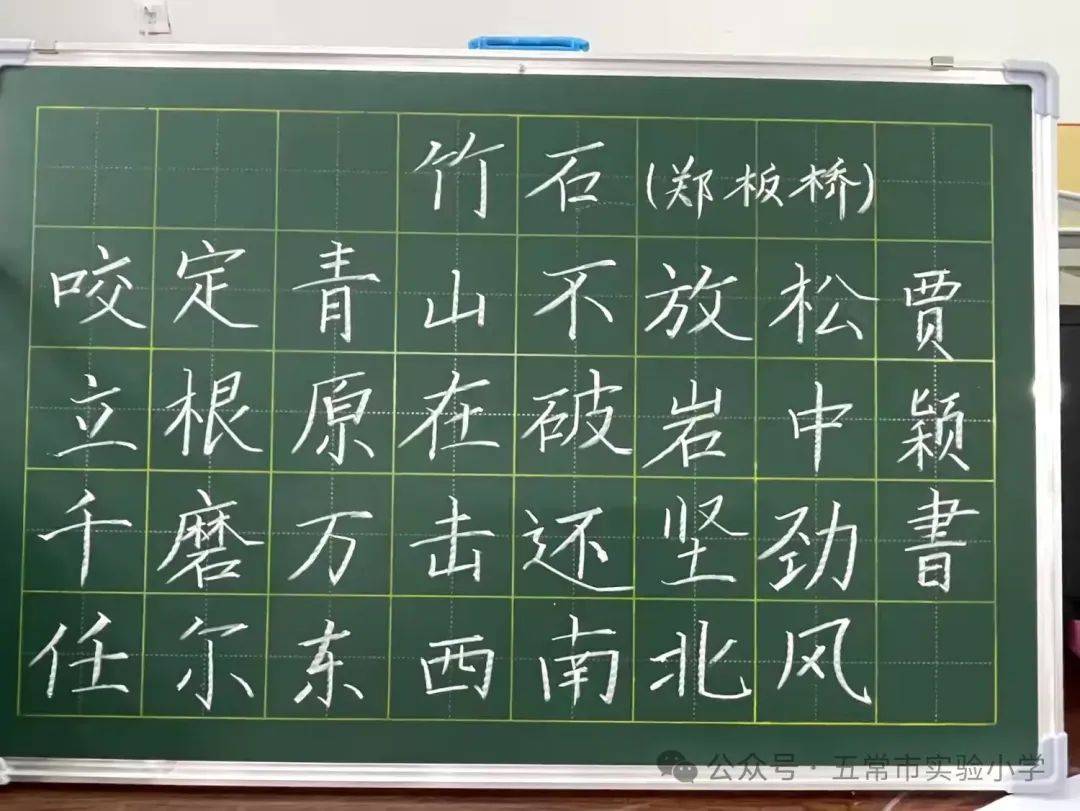 竹石(郑板桥)
咬定青山不放松
立根原在破岩中
千磨万击还坚劲
任尔东西南北风
贾颖書
公众号·五常市实验小学